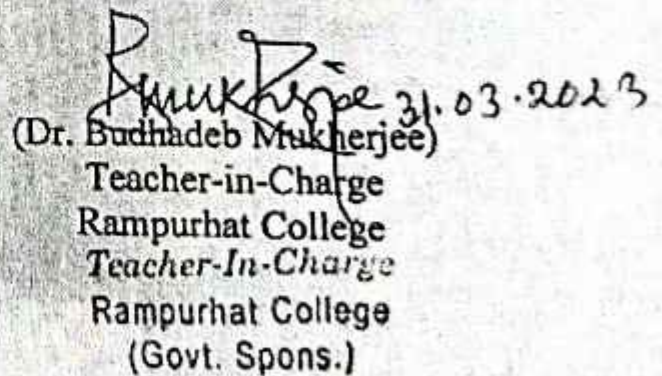 BMukherjee 31.03.2023
(Dr. Budhadeb Mukherjee)
Teacher-in-Charge
Rampurhat College
Teacher-In-Charge
Rampurhat College
(Govt. Spons.)